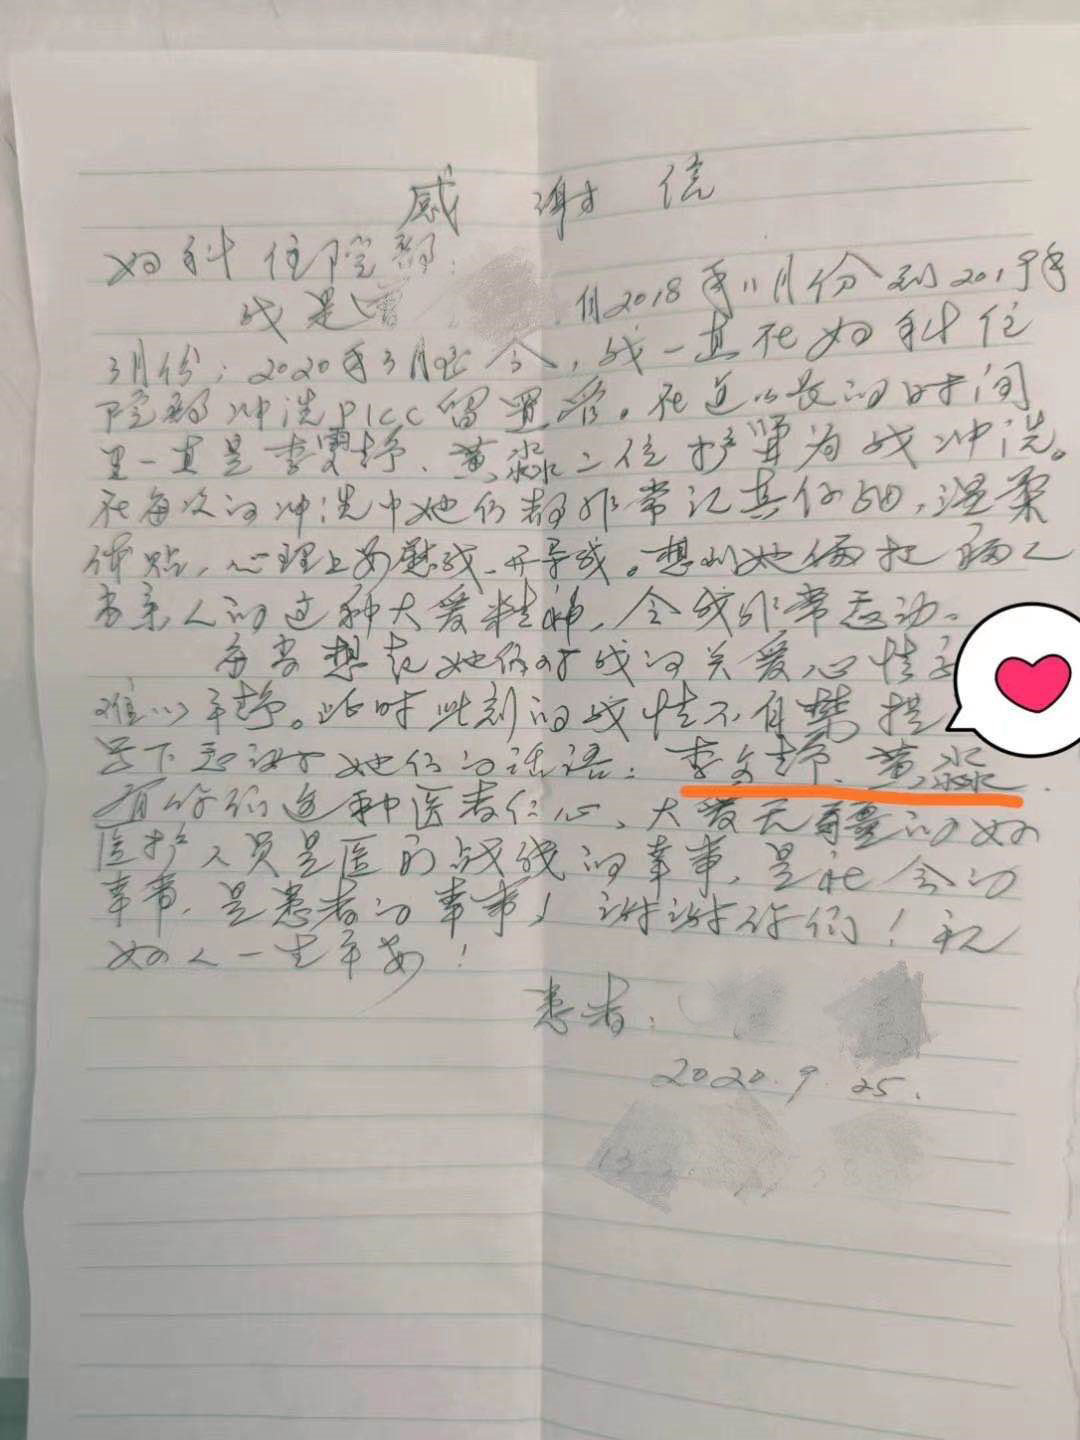 感谢信
妇科住院部:
我是曾 自2018年11月份到2019年
3月份;2020年3月至今,我一直在妇科住
院部冲洗PICC留置管。在这么长的时间
里一直是李 静、黄淼二位护士为我冲洗。
在每次的冲洗中她们都非常认真仔细,温柔
体贴,心理上安慰我、开导我。想到她俩把病人
当亲人的这种大爱精神,令我非常感动。
每当想起她们对我的关爱心情
难以平静。此时此刻的我情不自禁提
写下 她们的话语:李文静、黄淼
有你们这种医者仁心、大爱无疆的好
医护人员是医疗战线的幸事,是社会的
幸事,是患者的幸事!谢谢你们!祝
好人一生平安!
患者:
2020.9.25.